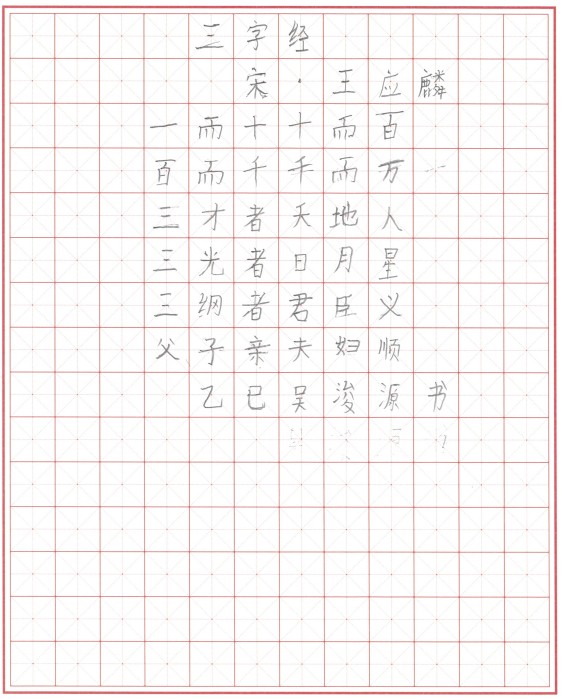 三字经
宋·王应麟
一而十十而百
百而千千而万
三才者天地人
三光者日月星
三纲者君臣义
父子亲夫妇顺
乙巳吴浚源书